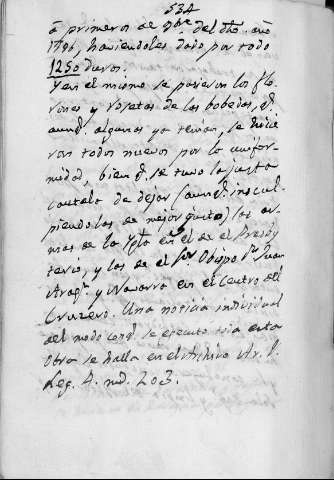 534
à primeros de 9bre del dho. año
1796, haviendoles dado por todo
1250 duros.
Y en el mismo se pusieron los flo-
rones y rosetas de las bobedas, q.
aunq. algunas ya tenian, se hicie-
ron todos nuevos por la unifor-
midad, bien q. se tuvo la justa
cautela de dejar (aunq. inscul-
piendolas de mejor gusto) las ar-
mas de la Ygla en el de el Presby-
terio, y las de el Sr. Obispo Dn. Juan
Arag.n y Navarro en el Centro del
Cruzero. Una noticia individual
del modo conq. se executo toda esta
Obra se halla en el Archivo Ar. J.
Leg. 4. nū. 203.